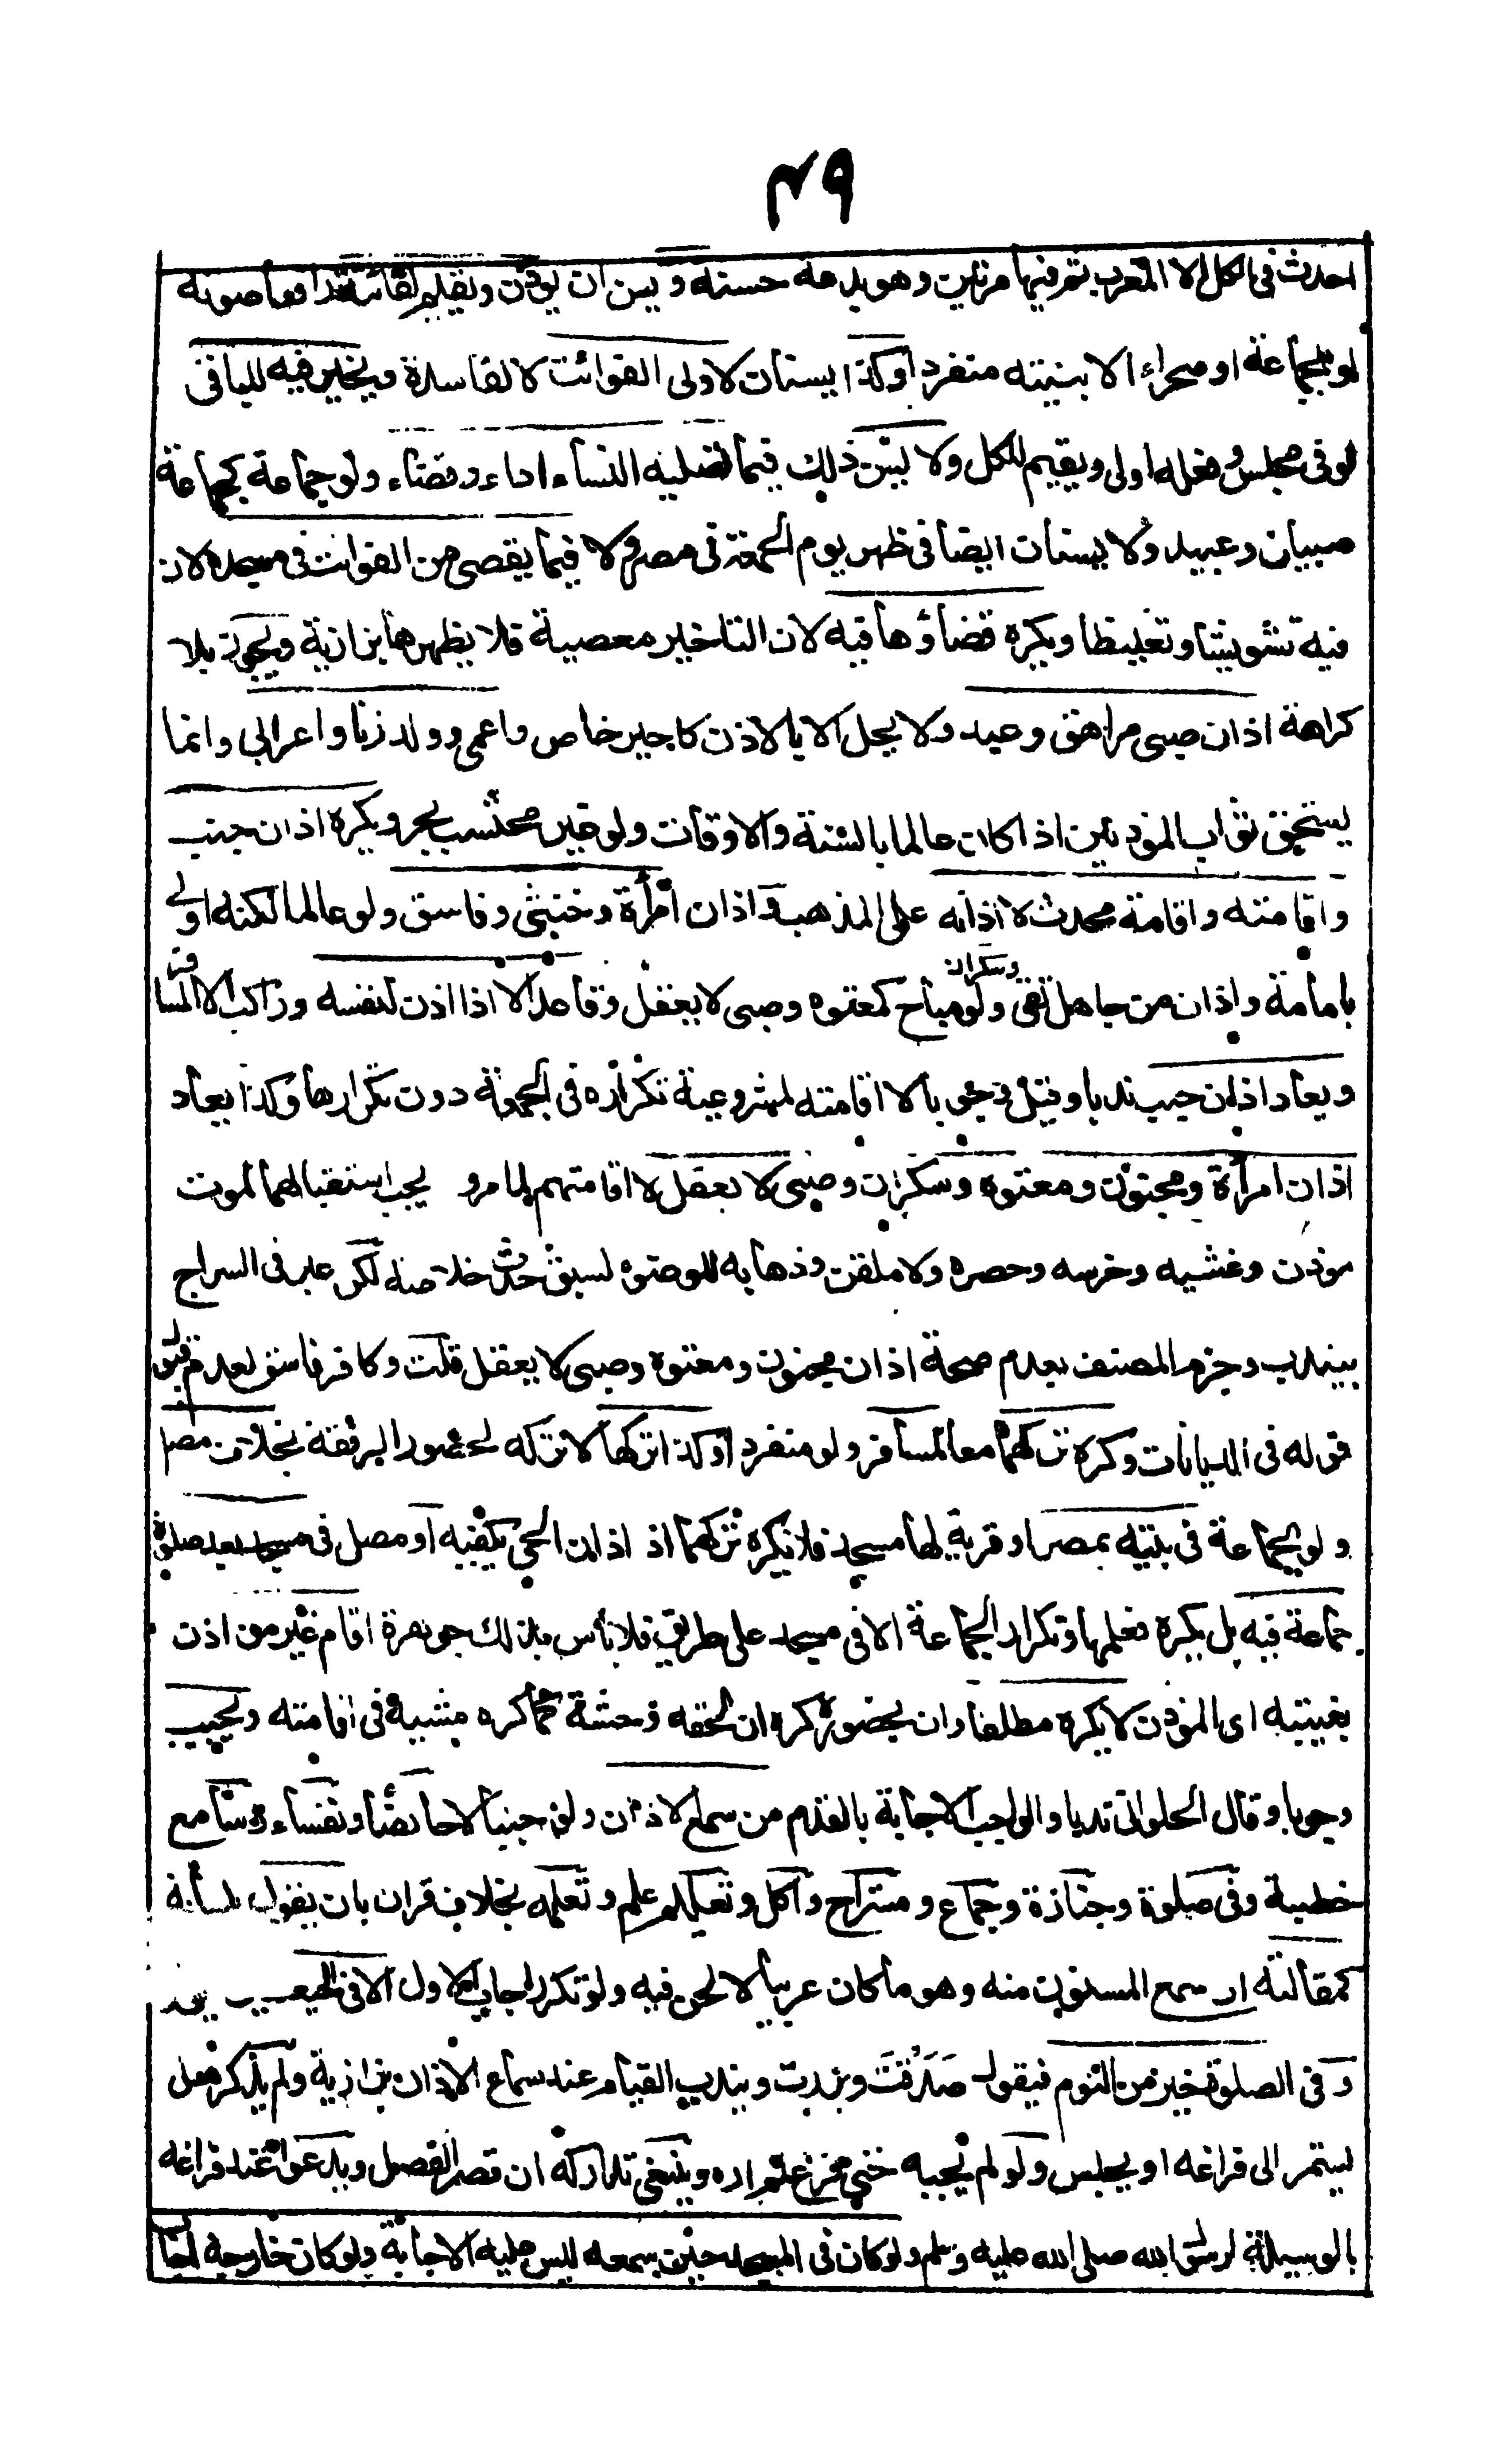 ٤٩
احدث في الكل الا المغرب ثم فيها مرتين وهو بدعة حسنة ويسن ان يؤذن ويقيم لفائتة رافعا صوته
لو بجماعة او صحراء لا ببيته منفردا وكذا يسنان لاولى الفوائت لا لفاسدة ويخير فيه للباقي
لو في مجلس وفعله اولى ويقيم للكل ولا يسن ذلك فيما تصليه النساء اداء وقضاء ولو جماعة كجماعة
صبيان وعبيد ولا يسنان ايضا في ظهر يوم الجمعة في مصر ولا فيما يقضى من الفوائت في مسجد لان
فيه تشويشا وتغليظا ويكره قضاؤها فيه لان التاخير معصية فلا يظهرها بزازية ويجوز بلا
كراهة اذان صبي مراهق وعبد ولا يحل الا بالاذن كاجير خاص واعمى وولد زنا واعرابي وانما
يستحق ثواب المؤذنين اذا كان عالما بالسنة والاوقات ولو غير محتسب بحر ويكره اذان جنب
واقامته واقامة محدث لا اذانه على المذهب واذان امرأة وخنثى وفاسق ولو عالما لكنه اولى
بامامة واذان من جاهل تقي وسكران ولو بمباح كمعتوه وصبي لا يعقل وقاعد الا اذا اذن لنفسه وراكب الا المسافر
ويعاد اذان جنب ندبا وقيل وجوبا لا اقامته لمشروعية تكراره في الجمعة دون تكرارها وكذا يعاد
اذان امرأة ومجنون ومعتوه وسكران وصبي لا يعقل لا اقامتهم لما مر و يجب استقبالهما لموت
موذن وغشيه وخرسه وحصره ولا ملقن وذهابه للوضوء لسبق حدث خلاصة لكن عبر في السراج
بيندب وجزم المصنف بعدم صحة اذان مجنون ومعتوه وصبي لا يعقل قلت وكافر فاسق لعدم قبول
قوله في الديانات وكره تركهما معا لمسافر ولو منفردا وكذا تركها لا تركه لحضور الرفقة بخلاف مصل
ولو بجماعة في بيته بمصر او قرية لها مسجد فلا يكره تركهما اذ اذان الحي يكفيه او مصل في مسجد بعد صلوة
جماعة فيه بل يكره فعلهما وتكرار الجماعة الا في مسجد على طريق فلا بأس بذلك جوهرة اقام غير من اذن
بغيبته اى المؤذن لا يكره مطلقا وان بحضوره كره ان لحقه وحشة كما كره مشيه في اقامته ويجيب
وجوبا وقال الحلواني ندبا والواجب الاجابة بالقدم من سمع الاذان ولو جنبا لا حائضا ونفساء وسامع
خطبة وفي صلوة وجنازة وجماع ومستراح واكل وتعليم علم وتعلمه بخلاف قران بان يقول بلسانه
كمقالته ان سمع المسنون منه وهو ما كان عربيا لا لحن فيه ولو تكرر اجاب الاول الا في الحيعلتين
وفي الصلوة خير من النوم فيقول صَدَقْتَ وبررت ويندب القيام عند سماع الاذان بزازية ولم يذكر هل
يستمر الى فراغه او يجلس ولو لم يجبه حتى فرغ لم اره وينبغي تداركه ان قصر الفصل ويدعو عند فراغه
بالوسيلة لرسول الله صلى الله عليه وسلم ولو كان في المسجد حين سمعه ليس عليه الاجابة ولو كان خارجه اجاب